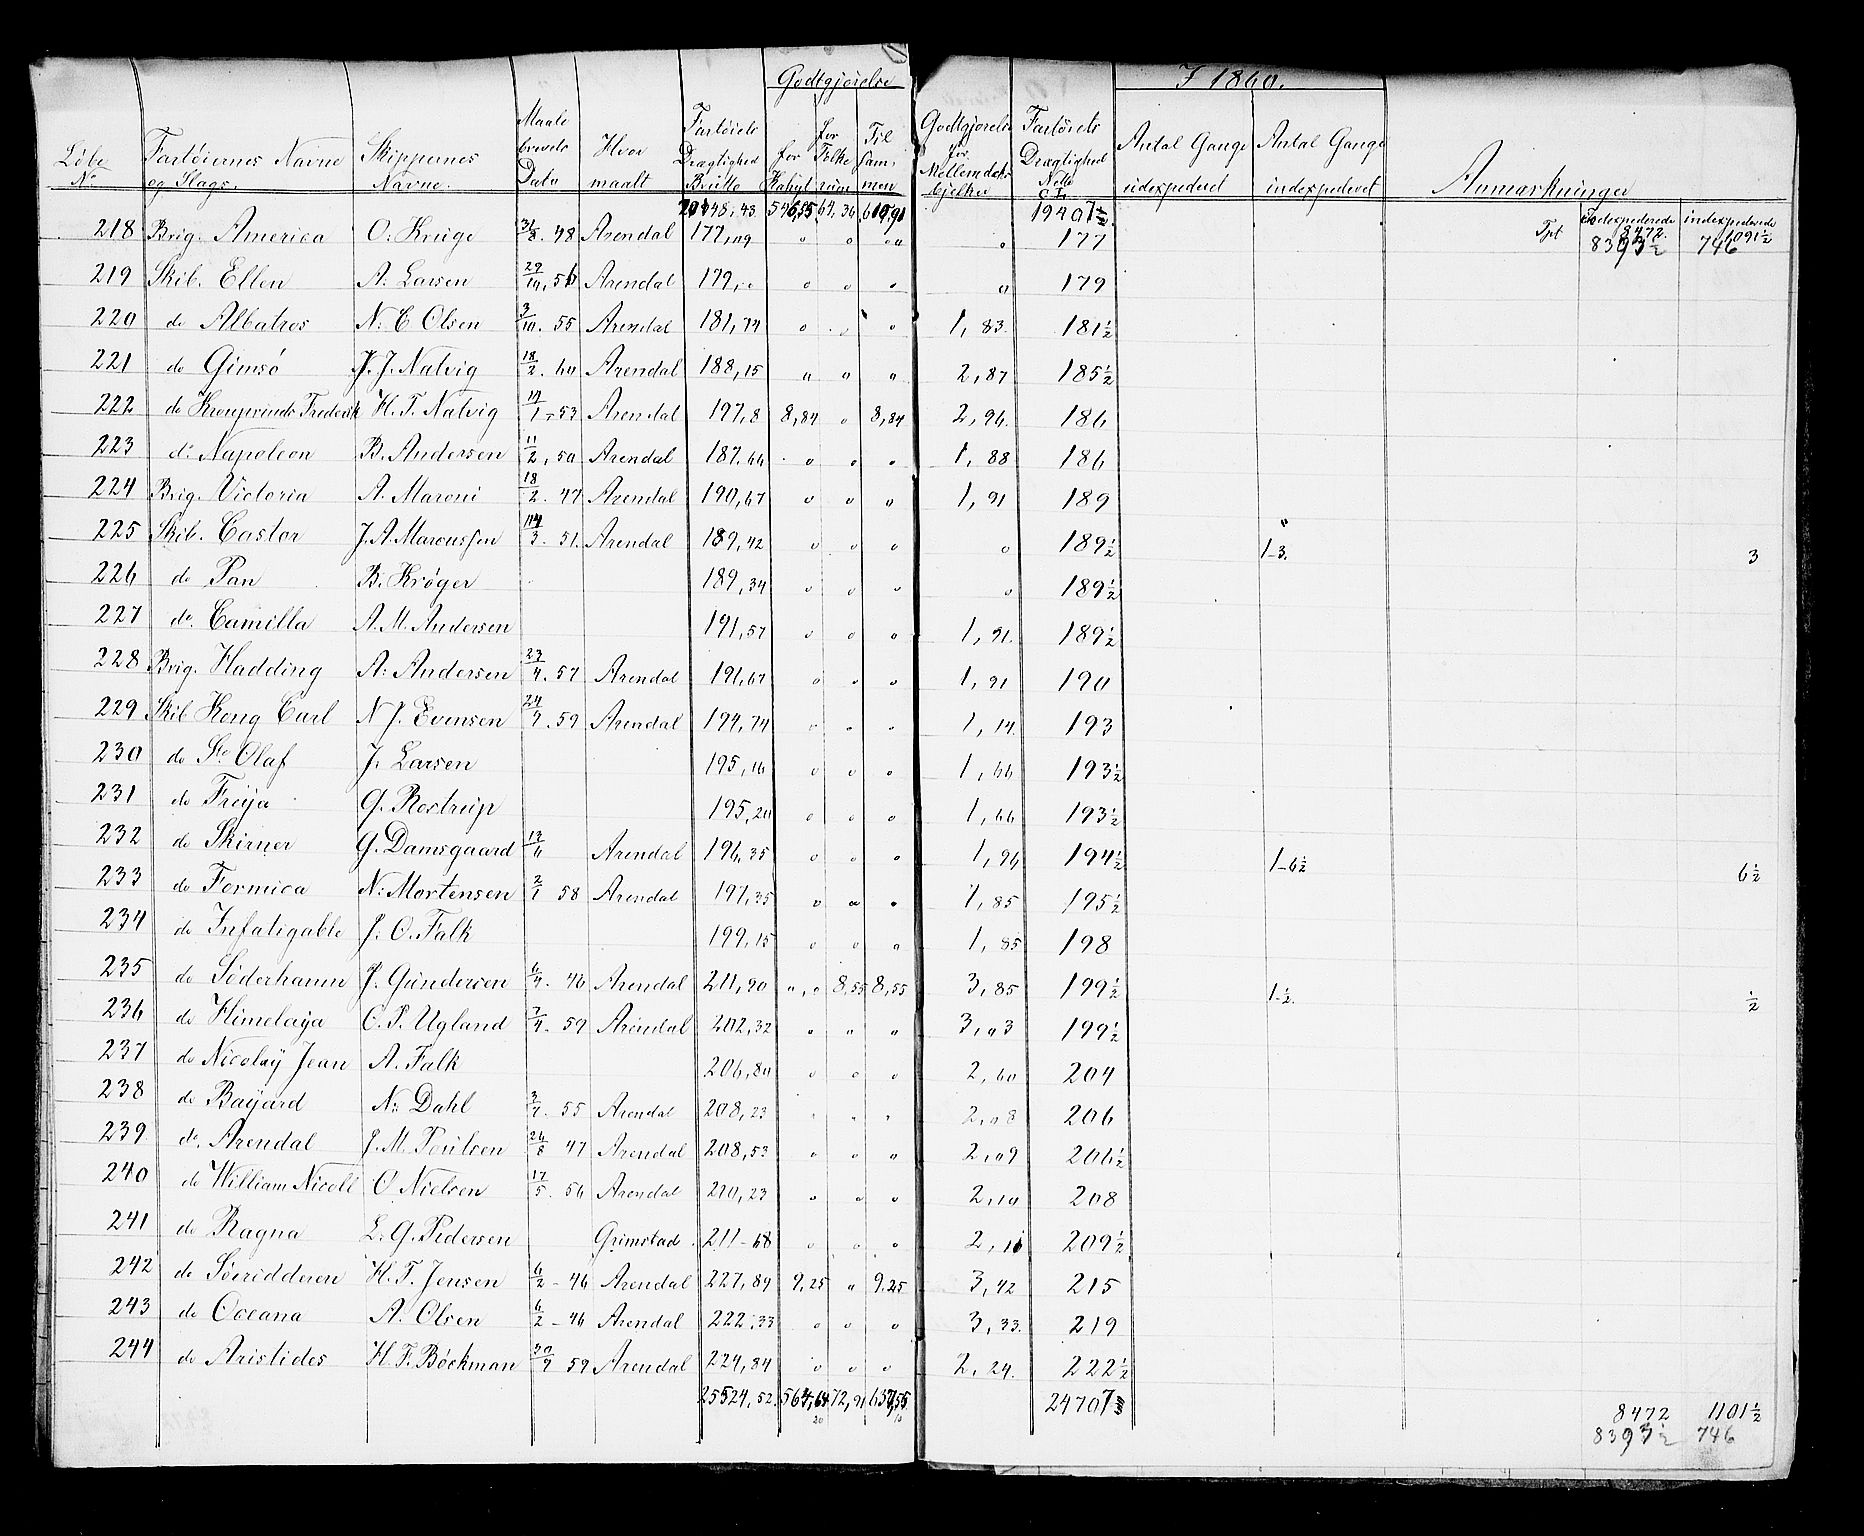 Godtgjørelse
I 1860.
Løbe No
Fartøiernes Navne og Slags.
Skippernes Navne.
Maale brevets Dato
Hvor maalt
Fartøiets Drægtighed Brutto
for Kahyt
for Folke rum
Til sam- men
Godtgjørelse for Mellemdeks bjelker
Fartøiets Drægtighed Netto C L
Antal Gange udexpederet
Antal Gange indexpederet
Anmærkninger
64,36 19407½ udexpederede indexpederede
8472. 1091½
218 Brig. America O. Kruge 31/8. 48 Arendal 177,09 " " " " 177 Tpt 8393½ 746
219 Skib. Ellen A. Larsen 29/10, 56 Arendal 179," " " " " 179
220 do Albatros N. C Olsen 3/10. 55 Arendal 181,74 " " " 1,83. 181½
221 do Gimsø J. J. Natvig 18/2. 60 Arendal 188,15 " " " 2,87 185½
222 do Kronprinds Frederik H. T. Natvig 14/1-53 Arendal 197,8 8,84 " 8,84 2,96. 186
223 do Napoleon B. Andersen 11/2, 50 Arendal 187,66 " " " 1,88 186
224 Brig. Victoria A. Maroni 18/2. 47 Arendal 190,67 " " " 1,91 189
225 Skib. Castor J. A. Marcussen 14/3. 51. Arendal 189,42 " " " " 189½ 1-3. 3
226 do Pan B. Krøger 189,34 " " " " 189½
227 do. Camilla A. M. Andersen 191,57 " " " 1,91. 189½
228 Brig. Hadding A. Andersen 23/4. 57 Arendal 191,67 " " " 1,91 190
229 Skib Kong Carl N J. Evensen 24/7. 59 Arendal 194,74 " " " 1,14. 193
230 do St. Olaf J. Larsen 195,16 " " " 1,66 193½
231 do Freija G. Rostrup 195,20 " " " 1,66 193½
232 do Skirner G. Damsgaard 13/6 Arendal 196,35 " " " 1,96 194½ 1-6½ 6½
233 do Formica N. Mortensen 2/1 58 Arendal 197,35 " " " 1,85 195½
234 do Infatigable J. O. Falk 199,15 " " " 1,85 198
235 do Søderhamn J. Gundersen 6/4. 46 Arendal 211,90 "," 8,55 8,55 3,85 199½ 1-½. ½
236 do Himelaya O. P. Ugland 7/4. 59 Arendal 202,32 " " " 3,03 199½
237 do Nicolaÿ Jean A. Falk 206,80 " " " 2,60 204
238 do Bayard N. Dahl 3/7. 55 Arendal 208,23 " " " 2,08 206
239. do. Arendal J. M. Poulsen 26/8 47 Arendal 208,53 " " " 2,09 206½
240 do William Nicoll O Nielsen 17/5. 56 Arendal 210,23 " " " 2,10 208
241 do Ragna L. G. Pedersen Grimstad. 211-68 " " " 2,11 209½
242 do Søeridderen H. T. Jensen 6/2-46 Arendal 227,89 9,25 " 9,25 3,42 215
243 do Oceana A. Olsen 6/2-46 Arendal 222,33 " " " 3,33. 219
244 do Aristides H. T. Bøckman 30/7 59 Arendal 224,84 " " " 2,24. 222½
25524,52. 72,91 8472 1101½
8393½ 746